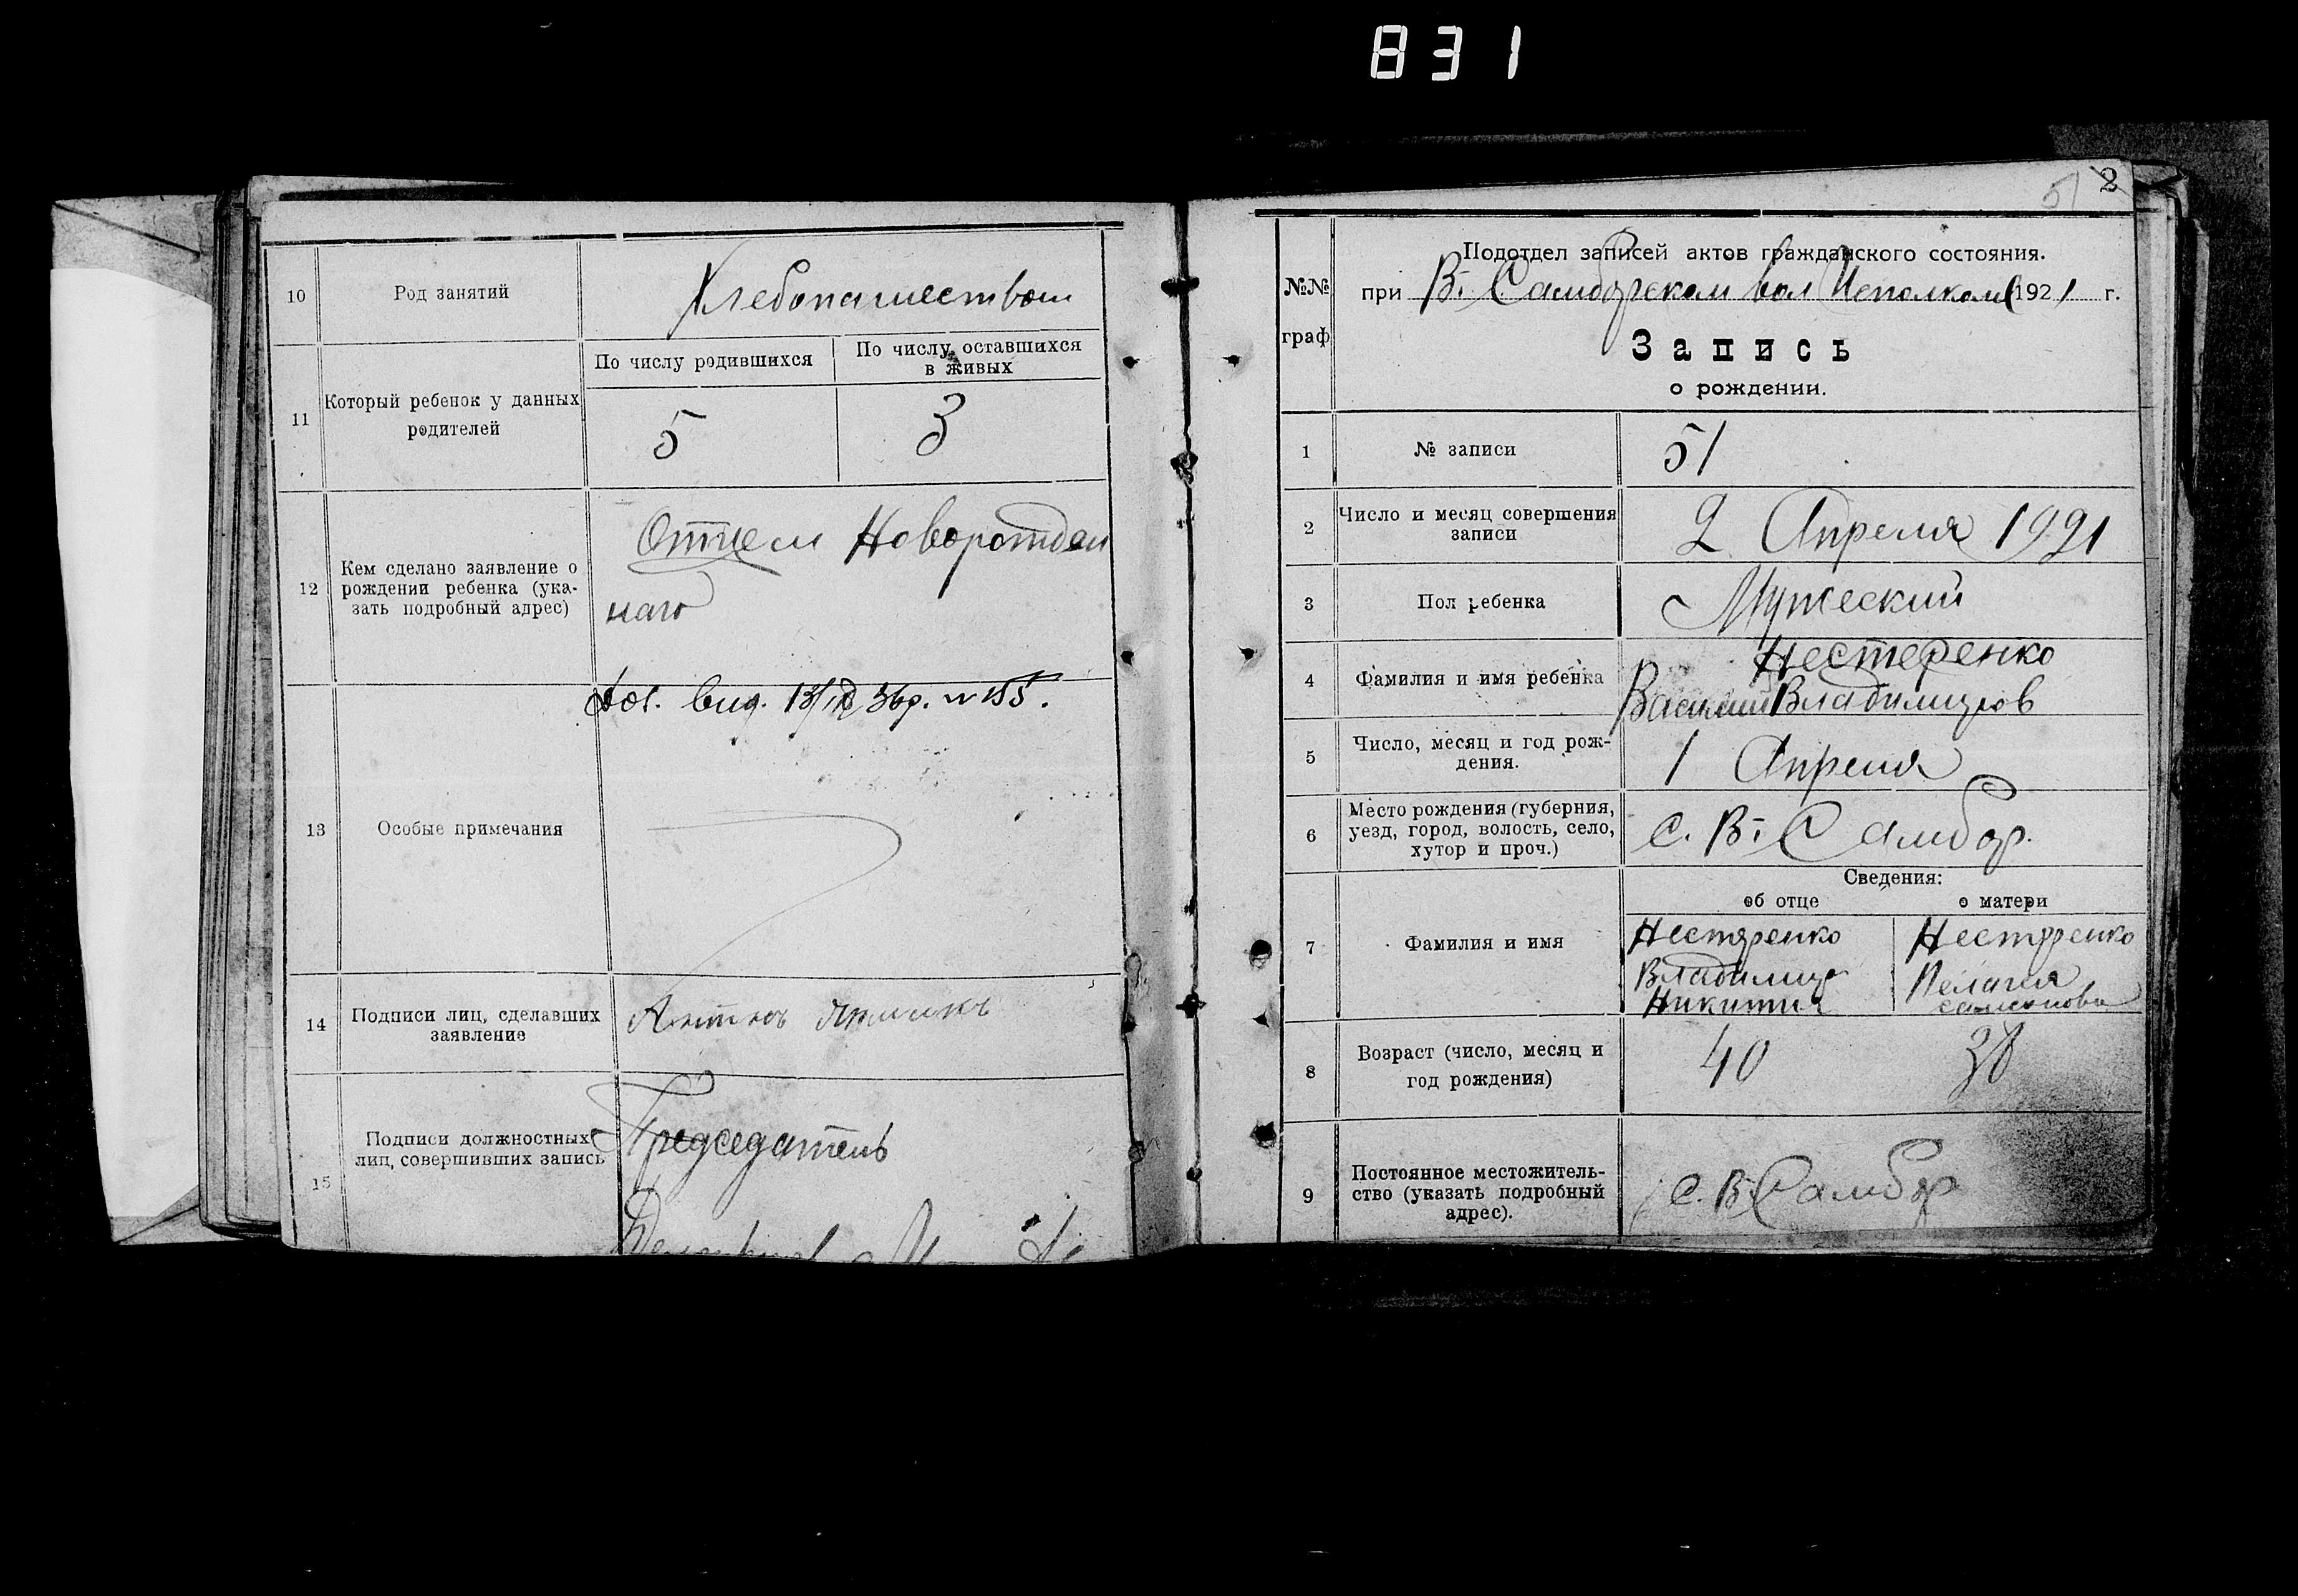 831
10
Род занятий
Хлебопашеством
11
Который ребенок у данных
родителей
По числу родившихся
По числу оставшихся
в живых
5
3
12
Кем сделано заявление о
рождении ребенка (ука-
зать подробный адрес)
Отцем Новорожден
наго
13
Особые примечания
вид. № 155.
14
Подписи лиц, сделавших
заявление
15
Подписи должностных
лиц, совершивших запись
Председатель
51 2
№№
граф
Подотдел записей актов гражданского состояния.
при В. Самборском вол Исполкоме 1921 г.
Запись
о рождении.
1
№ записи
51
2
Число и месяц совершения
записи
2 Апреля 1921
3
Пол ребенка
Мужеский
4
Фамилия и имя ребенка
Нестеренко
Василий Владимиров
5
Число, месяц и год рож-
дения.
1 Апреля
6
Место рождения (губерния,
уезд, город, волость, село,
хутор и проч.)
С. В. Самбор.
Сведения:
об отце
о матери
7
Фамилия и имя
Нестеренко
Владимир
Никитич
Нестеренко
Пелагея
8
Возраст (число, месяц и
год рождения)
40
9
Постоянное местожитель-
ство (указать подробный
адрес).
С. В. Самбор